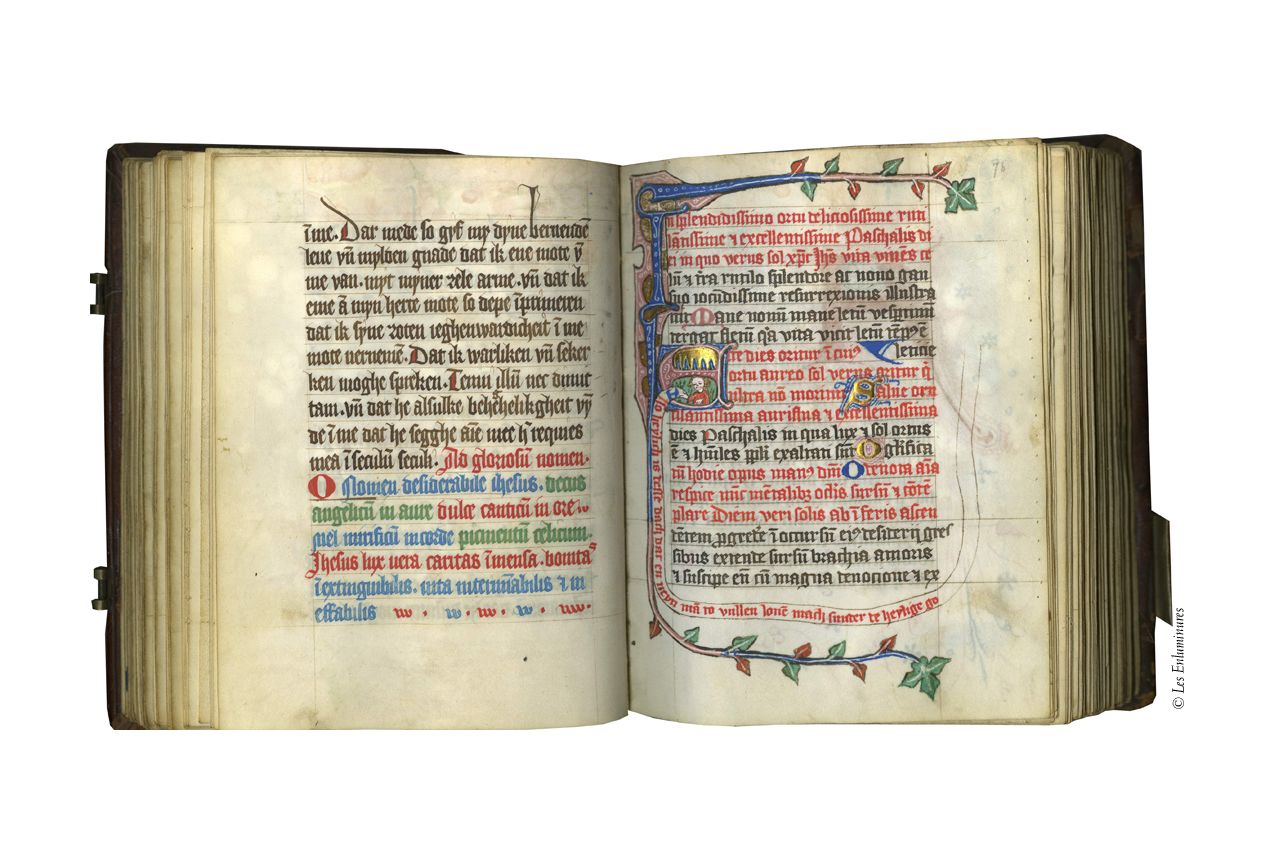 ī me. Dar mede so gyf my dyne bernendē
leue vn̄ mylden gnade dat ik ene mote v̄
me van. myt myner zele arme. vn̄ dat ik
ene ā myn herte mote so depe īprimeren
dat ik syne zoten ieghenwardicheit ī me
mote vernemē. Dat ik warliken vn̄ seker
ken moghe spreken. Tenui illū nec dimit
tam. vn̄ dat he alsulke behehelikgheit vȳ
de ī me dat he segghe Hec req̄es
mea ī seculū seculi. Ad gloriosū nomen.
O Nomen desiderabile ihesus. decus
angelicū in aure dulce canticū in ore
mel mirificū in corde pigmentū celicum
Jhesus lux vera caritas īmensa. bonitas
īextinguibilis. vita interminabilis & in
effabilis
96
In splendidissimo ortu deliciosissime ruti
lātissime & excellentissime Paschalis di
ei in quo verus sol xp̄c Ihs vita viuēs ce
lū & t̄ra rutilo splendore ac nouo gau
dio iocundissime resurrexionis illustra
uit Mane nouum mane letum vesp̄tinū
tergat fletū q̄a vita vicit letū temp̄ ē
Iste dies oritur ī cui⁹ leticie
ortu aureo sol verus oritur q̄
vltra nō morit Salue oru
tilantissima aurista & excellentissima
dies Paschalis in qua lux & sol ortus
ē & hūiles p̄pli exaltati sūt O gl̄ifica
tū hodie opus man⁹ dn̄i O deuota aīa
respice nūc mētalib⁹ oclīs sursū & cōtē
plare Diem veri solis ab īferis ascen
dētem p̄gredere ī occursū ei⁹ desiderij gres
sibus extende sursū brachia amoris
& suscipe eū cū magna deuocione & ex
mā to vullen lone mach sunder de heylige go
© Les Enluminures